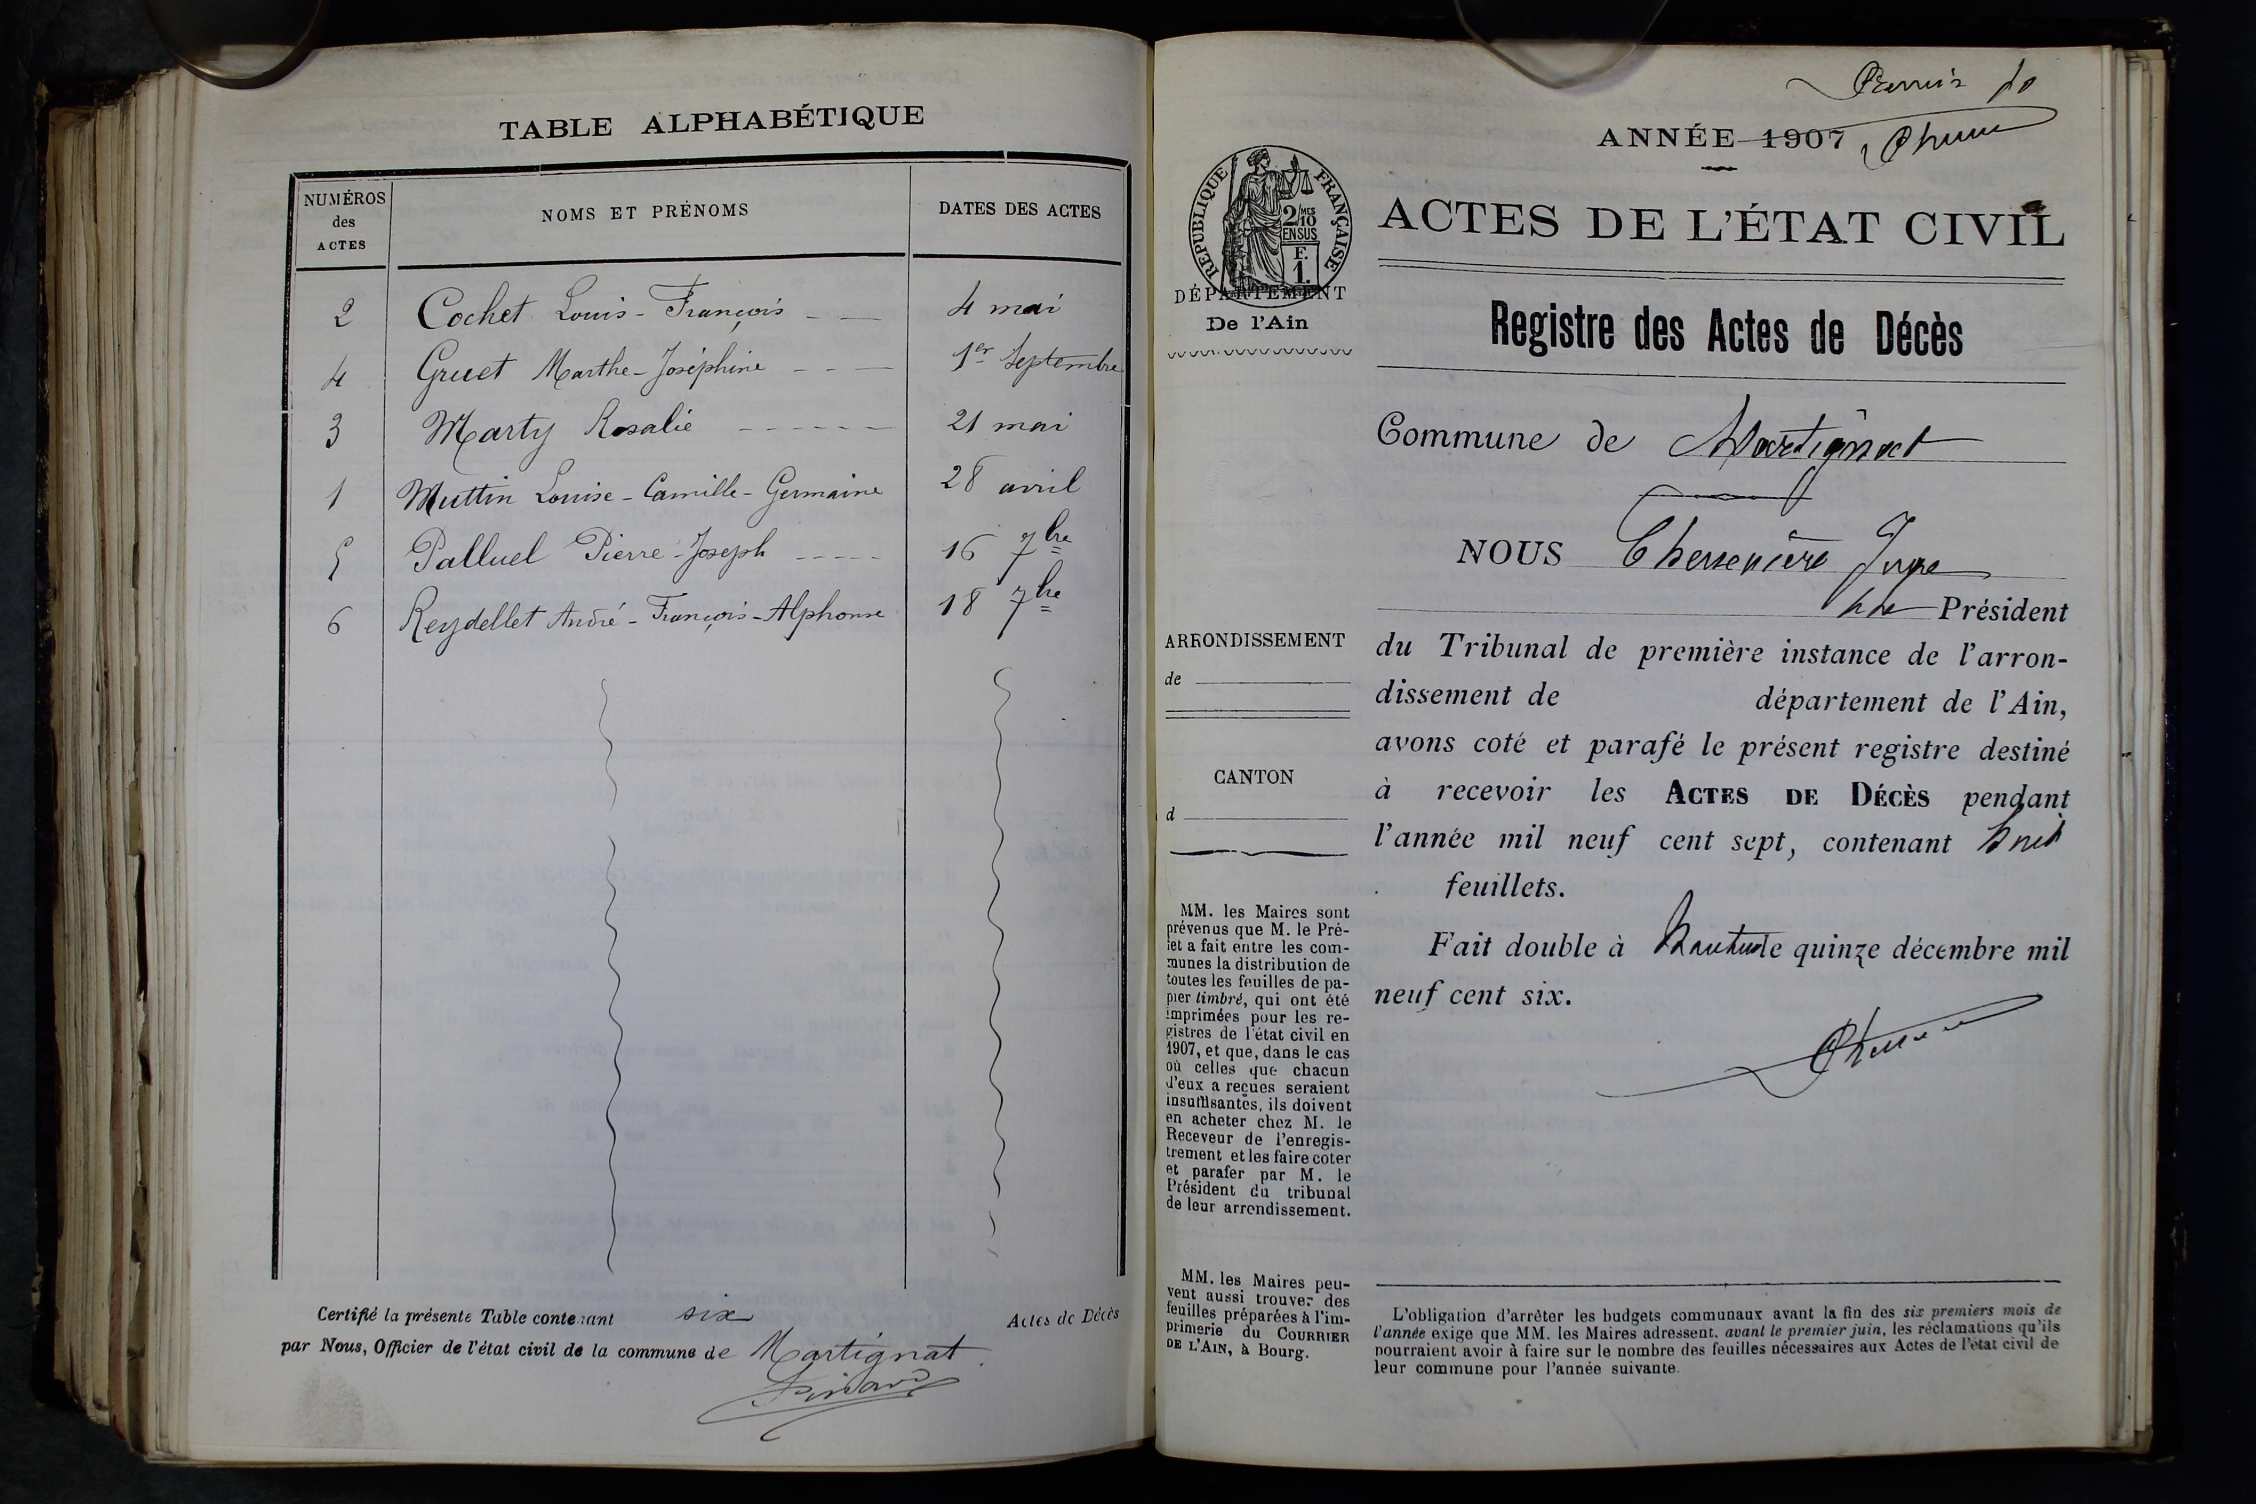 TABLE ALPHABÉTIQUE
NUMÉROS des ACTES
NOMS ET PRÉNOMS
DATES DES ACTES
2 Cochet Louis-François 4 mai
4 Gruet Marthe-Joséphine 1er Septembre
3 Marty Rosalie 21 mai
1 Muttin Louise-Camille-Germaine 28 avril
5 Palluel Pierre-Joseph 16 7bre
6 Reydellet André-François-Alphonse 18 7bre
Certifié la présente Table contenant six Actes de Décès
par Nous, Officier de l'état civil de la commune de Martignat
Premier
ANNÉE 1907
RÉPUBLIQUE FRANÇAISE
2/10 MES
EN SUS
F.
1.
DÉPARTEMENT
De l'Ain
ACTES DE L'ÉTAT CIVIL
Registre des Actes de Décès
Commune de Martignat
NOUS Juge
Président
ARRONDISSEMENT
de
du Tribunal de première instance de l'arron-
dissement de département de l'Ain,
avons coté et parafé le présent registre destiné
CANTON
d
à recevoir les ACTES DE DÉCÈS pendant
l'année mil neuf cent sept, contenant huit
feuillets.
Fait double à Nantua le quinze décembre mil
neuf cent six.
MM. les Maires sont
prévenus que M. le Pré-
fet a fait entre les com-
munes la distribution de
toutes les feuilles de pa-
pier timbré, qui ont été
imprimées pour les re-
gistres de l'état civil en
1907, et que, dans le cas
où celles que chacun
d'eux a reçues seraient
insuffisantes, ils doivent
en acheter chez M. le
Receveur de l'enregis-
trement et les faire coter
et parafer par M. le
Président du tribunal
de leur arrondissement.
MM. les Maires peu-
vent aussi trouver des
feuilles préparées à l'im-
primerie du COURRIER
DE L'AIN, à Bourg.
L'obligation d'arrêter les budgets communaux avant la fin des six premiers mois de
l'année exige que MM. les Maires adressent, avant le premier juin, les réclamations qu'ils
pourraient avoir à faire sur le nombre des feuilles nécessaires aux Actes de l'état civil de
leur commune pour l'année suivante.